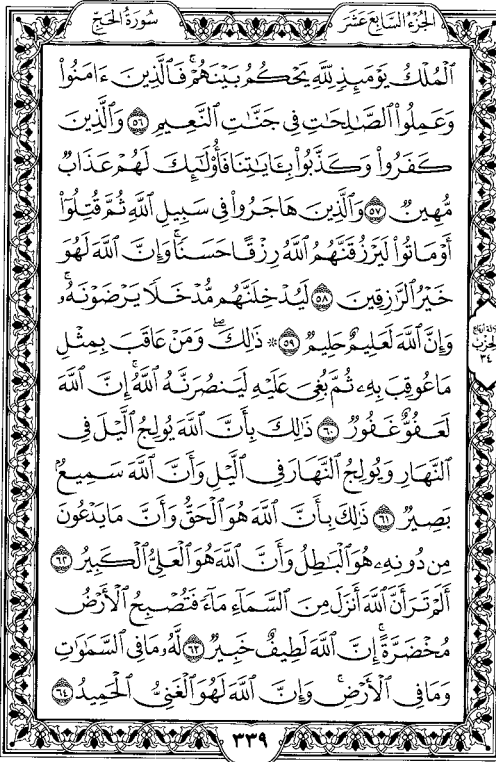 الجزء السابع عشر
سورة الحج
ٱلۡمُلۡكُ يَوۡمَئِذٖ لِّلَّهِ يَحۡكُمُ بَيۡنَهُمۡۚ فَٱلَّذِينَ ءَامَنُواْ
وَعَمِلُواْ ٱلصَّٰلِحَٰتِ فِي جَنَّٰتِ ٱلنَّعِيمِ ٥٦ وَٱلَّذِينَ
كَفَرُواْ وَكَذَّبُواْ بِـَٔايَٰتِنَا فَأُوْلَٰٓئِكَ لَهُمۡ عَذَابٞ
مُّهِينٞ ٥٧ وَٱلَّذِينَ هَاجَرُواْ فِي سَبِيلِ ٱللَّهِ ثُمَّ قُتِلُوٓاْ
أَوۡ مَاتُواْ لَيَرۡزُقَنَّهُمُ ٱللَّهُ رِزۡقًا حَسَنٗاۚ وَإِنَّ ٱللَّهَ لَهُوَ
خَيۡرُ ٱلرَّٰزِقِينَ ٥٨ لَيُدۡخِلَنَّهُم مُّدۡخَلٗا يَرۡضَوۡنَهُۥۚ
وَإِنَّ ٱللَّهَ لَعَلِيمٌ حَلِيمٞ ٥٩ ۞ ذَٰلِكَۖ وَمَنۡ عَاقَبَ بِمِثۡلِ
مَا عُوقِبَ بِهِۦ ثُمَّ بُغِيَ عَلَيۡهِ لَيَنصُرَنَّهُ ٱللَّهُۚ إِنَّ ٱللَّهَ
لَعَفُوٌّ غَفُورٞ ٦٠ ذَٰلِكَ بِأَنَّ ٱللَّهَ يُولِجُ ٱلَّيۡلَ فِي
ٱلنَّهَارِ وَيُولِجُ ٱلنَّهَارَ فِي ٱلَّيۡلِ وَأَنَّ ٱللَّهَ سَمِيعُۢ
بَصِيرٞ ٦١ ذَٰلِكَ بِأَنَّ ٱللَّهَ هُوَ ٱلۡحَقُّ وَأَنَّ مَا يَدۡعُونَ
مِن دُونِهِۦ هُوَ ٱلۡبَٰطِلُ وَأَنَّ ٱللَّهَ هُوَ ٱلۡعَلِيُّ ٱلۡكَبِيرُ ٦٢
أَلَمۡ تَرَ أَنَّ ٱللَّهَ أَنزَلَ مِنَ ٱلسَّمَآءِ مَآءٗ فَتُصۡبِحُ ٱلۡأَرۡضُ
مُخۡضَرَّةًۚ إِنَّ ٱللَّهَ لَطِيفٌ خَبِيرٞ ٦٣ لَّهُۥ مَا فِي ٱلسَّمَٰوَٰتِ
وَمَا فِي ٱلۡأَرۡضِۚ وَإِنَّ ٱللَّهَ لَهُوَ ٱلۡغَنِيُّ ٱلۡحَمِيدُ ٦٤
ثلاثة أرباع
الحزب
٣٤
٣٣٩